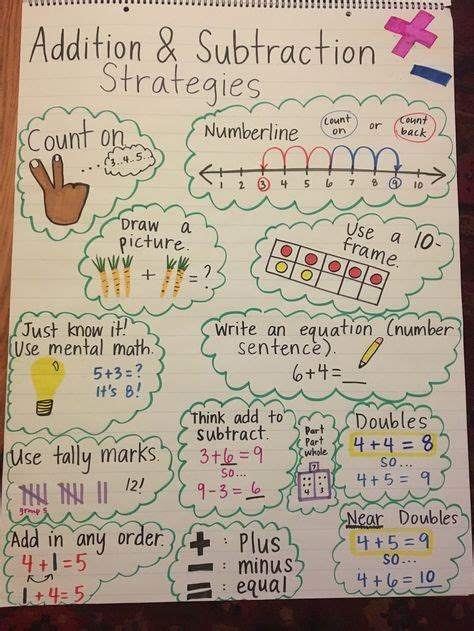 Addition & Subtraction
Strategies
Count on
3..4..5..
Numberline
Count on
or
Count back
1 2 3 4 5 6 7 8 9 10
Draw a
picture.
+ = ?
Use a 10-
frame.
Just know it!
Use mental math.
5+3=?
It's 8!
Write an equation (number
sentence).
6+4=__
Use tally marks.
12!
group 5
Think add to
subtract.
3+6=9
so...
9-3=6
Part
Part
whole
7
Doubles
4+4=8
so...
4+5=9
Add in any order.
4+1=5
1+4=5
+ : Plus
- : minus
= : equal
Near Doubles
4+5=9
so...
4+6=10